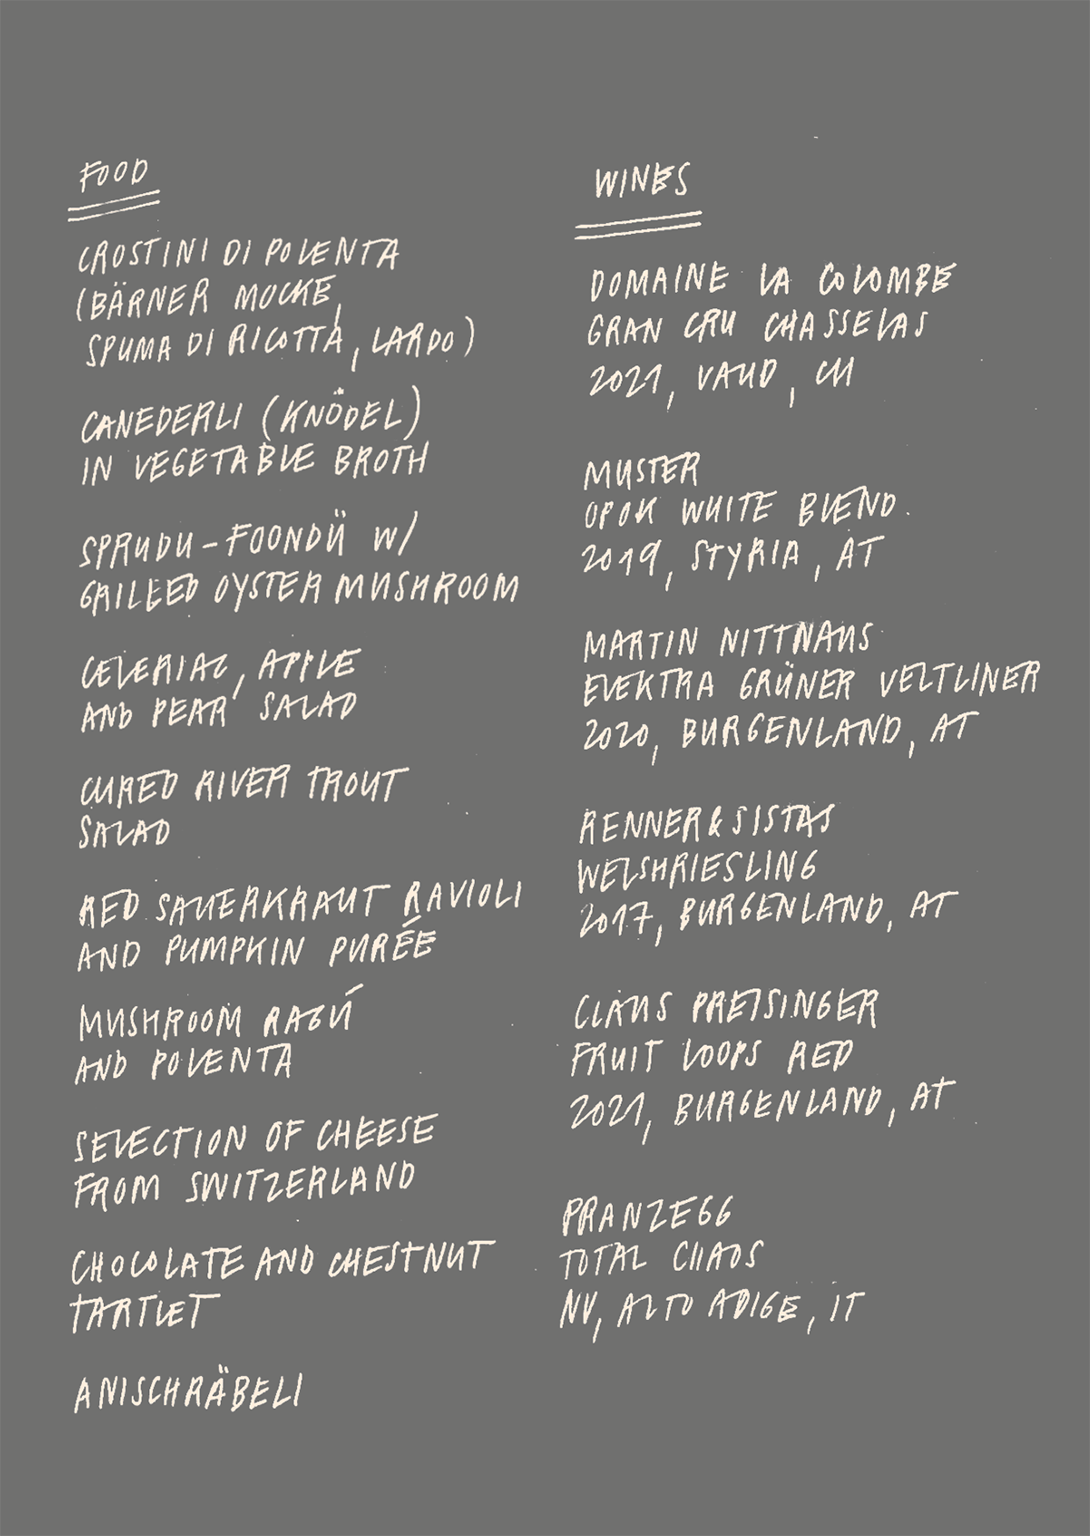 FOOD
CROSTINI DI POLENTA
(BÄRNER MOCKE,
SPUMA DI RICOTTA, LARDO)
CANEDERLI (KNÖDEL)
IN VEGETABLE BROTH
SPRUDU-FOONDÜ W/
GRILLED OYSTER MUSHROOM
CELERIAC, APPLE
AND PEAR SALAD
CURED RIVER TROUT
SALAD
RED SAUERKRAUT RAVIOLI
AND PUMPKIN PURÉE
MUSHROOM RAGÚ
AND POLENTA
SELECTION OF CHEESE
FROM SWITZERLAND
CHOCOLATE AND CHESTNUT
TARTLET
ANISCHRÄBELI
WINES
DOMAINE LA COLOMBE
GRAN CRU CHASSELAS
2021, VAUD, CH
MUSTER
OPOK WHITE BLEND.
2019, STYRIA, AT
MARTIN NITTNAUS
ELEKTRA GRÜNER VELTLINER
2020, BURGENLAND, AT
RENNER&SISTAS
WELSHRIESLING
2017, BURGENLAND, AT
CLAUS PREISINGER
FRUIT LOOPS RED
2021, BURGENLAND, AT
PRANZEGG
TOTAL CHAOS
NV, ALTO ADIGE, IT